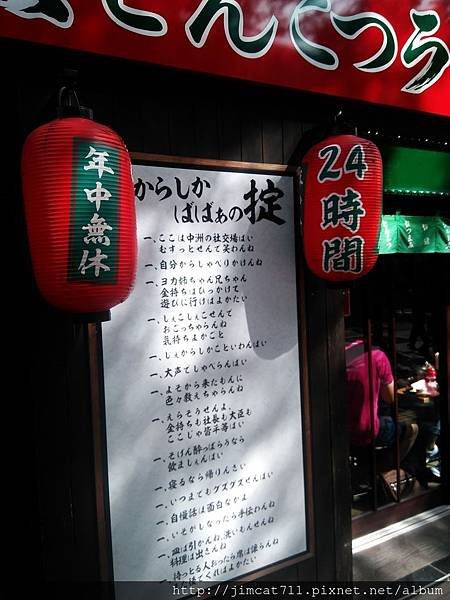 とんこつら
年中無休
24時間
からしか
ばばぁの掟
一、ここは中洲の社交場ばい
むすっとせんて笑わんね
一、自分からしゃべりかけんね
一、ヨカ姉ちゃん兄ちゃん
金持ちはひっかけて
遊びに行けばよかたい
一、しぇこしぇこせんて
おこっちゃらんね
気持ちよかこと
一、しぇからしかこといわんばい
一、大声でしゃべらんばい
一、よそから来たもんに
色々教えちゃらんね
一、えらそうせんよ
金持ちも社長も大臣も
ここじゃ皆平等ばい
一、そげん酔っぱらうなら
飲ましぇんばい
一、寝るなら帰りんさい
一、いつまでもグズグズせんばい
一、自慢話は面白なかよ
一、いそがしなったら手伝わんね
一、皿は引かんね、洗いもんせんね
料理は出さんね
一、待っとる人おったら席は譲らんね
てくればよかたい
http://jimcat711.pixnet.net/album